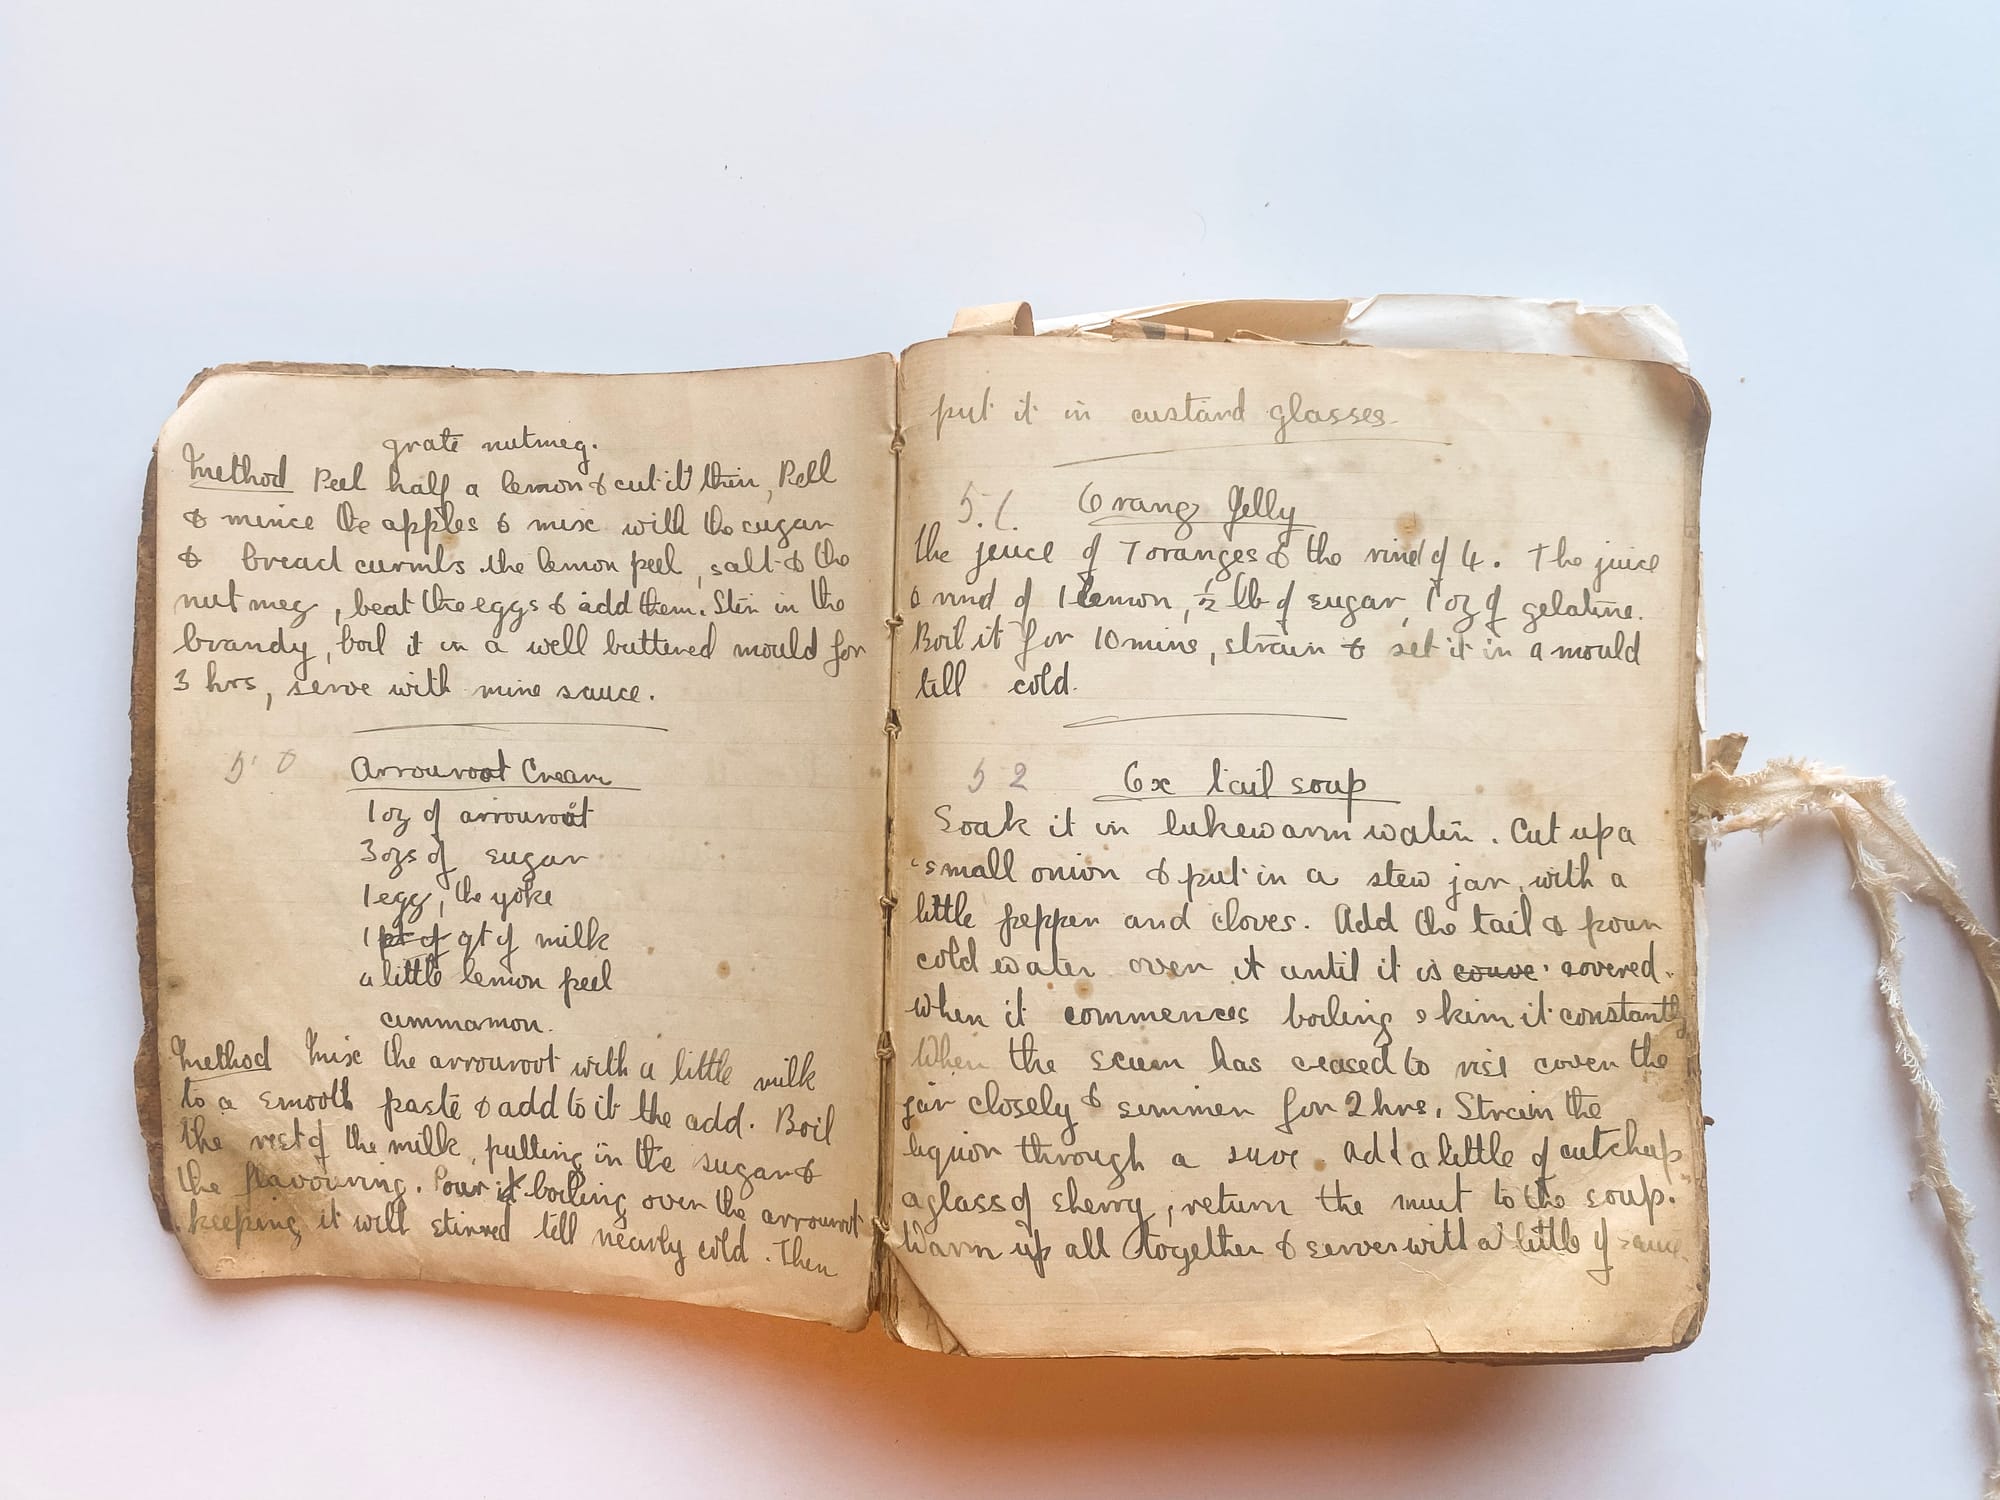 grate nutmeg.
Method Peel half a lemon & cut it thin, Pell
& mince the apples & mix with the sugar
& bread curmbs the lemon peel, salt & the
nutmeg, beat the eggs & add them. Stir in the
brandy, boil it in a well buttered mould for
3 hrs, serve with mine sauce.
50
Arrouroot Cream
1 oz of arrouroot
3 ozs of sugar
1 egg, the yoke
1 pt of qt of milk
a little lemon peel
cinnamon.
Method Mix the arrouroot with a little milk
to a smooth paste & add to it the add. Boil
the rest of the milk, putting in the sugar &
the flavouring. Pour it boiling over the arrouroot
keeping it well stirred till nearly cold. Then
put it in custard glasses.
51. Orang Jelly
the jeuce of 7 oranges & the rind of 4. The juice
& rind of 1 lemon, ½ lb of sugar, 1 oz of gelatine.
Boil it for 10 mins, strain & set it in a mould
till cold.
52 Ox tail soup
Soak it in lukewarm water. Cut up a
small onion & put in a stew jar, with a
little pepper and cloves. Add the tail & pour
cold water over it until it is couve covered.
when it commences boiling skim it constantly
When the scum has ceased to rise cover the
jar closely & simmer for 2 hrs. Strain the
liquor through a sive. Add a little of cutchup
a glass of sherry, return the meat to the soup.
Warm up all together & serve with a little of